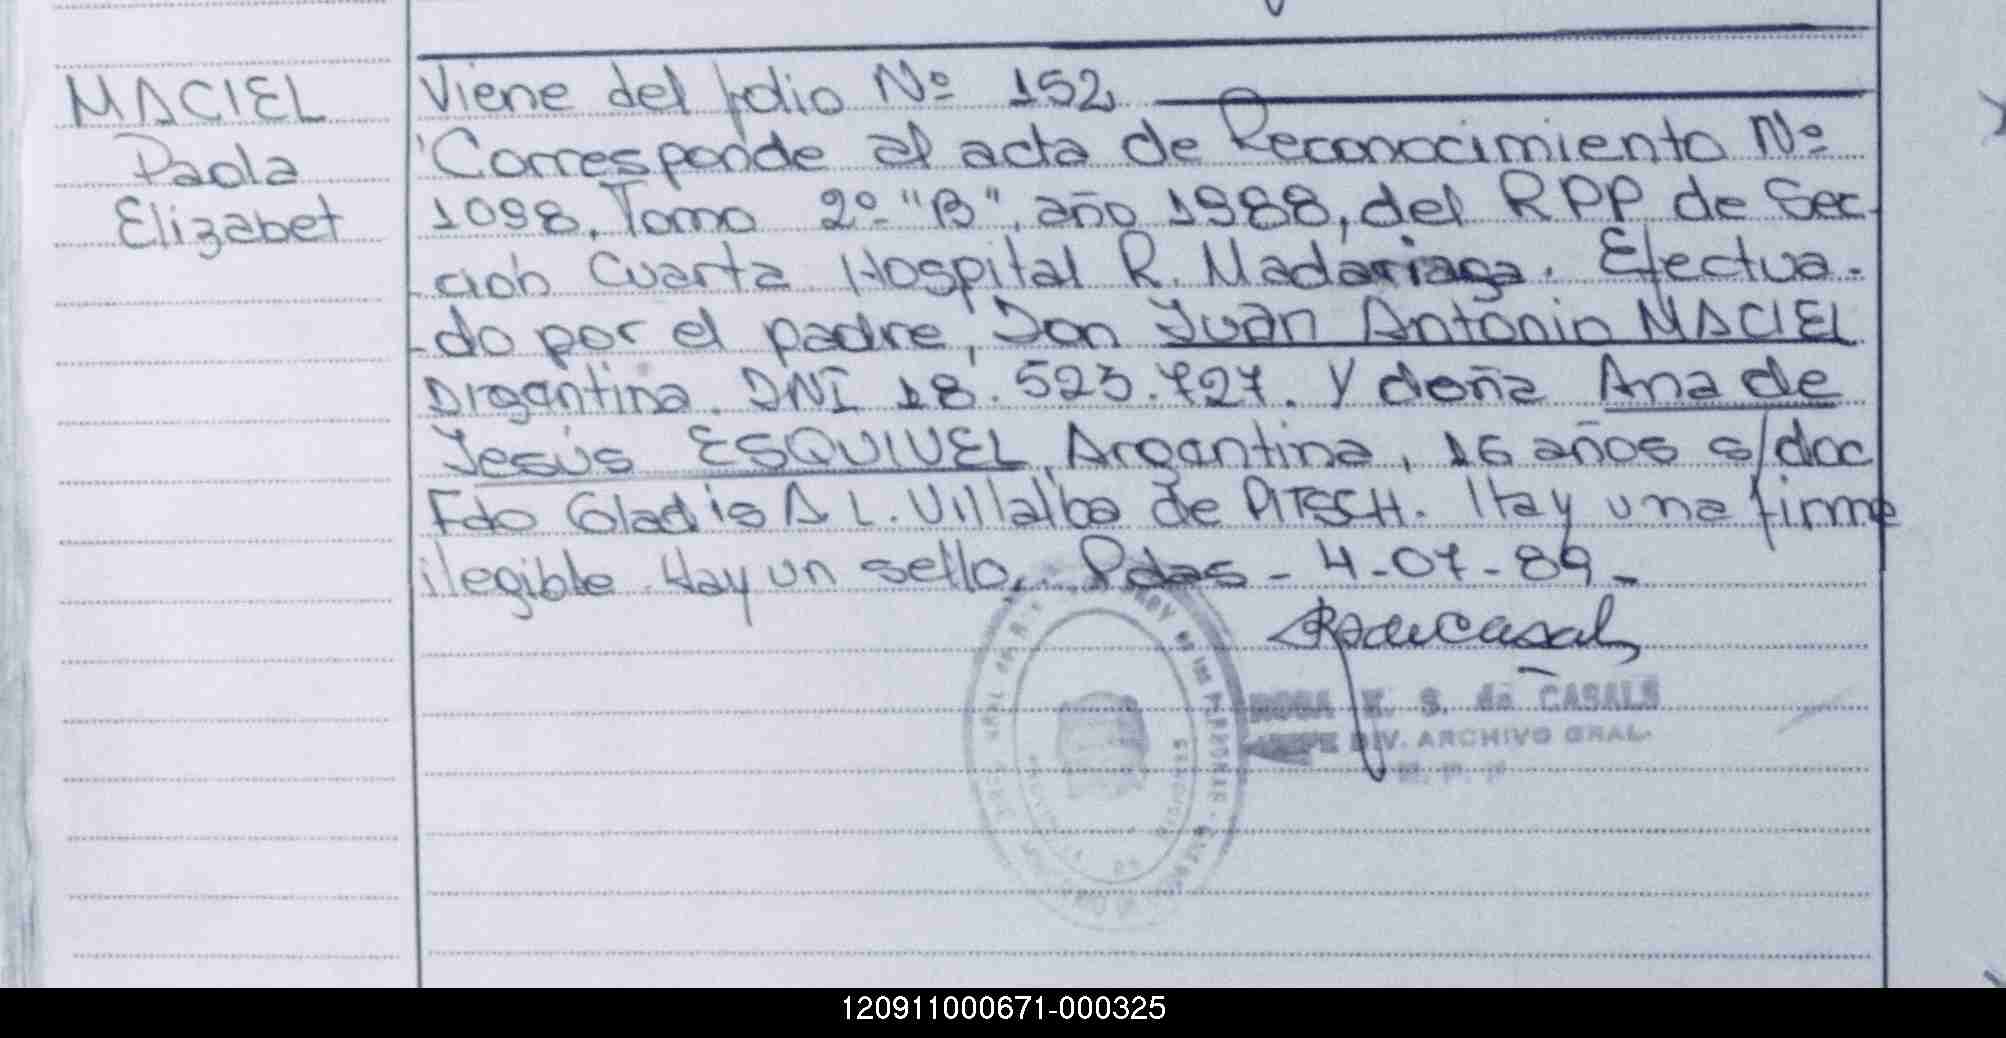 MACIEL
Paola
Elizabet
Viene del folio Nº 152
Corresponde al acta de Reconocimiento Nº
1098, Tomo 2º "B", año 1988, del RPP de Sec-
ción Cuarta Hospital R. Madariaga. Efectua-
-do por el padre, Don Juan Antonio MACIEL
Argantina. DNI 18.523.727. y doña Ana de
Jesús ESQUIVEL, Argantina, 16 años s/doc
Fdo Gladis A L. Villalba de PITSCH. Hay una firma
ilegible. Hay un sello. Pdas - 4-07-89-
ROSA E. S. de CASALS
JEFE DIV. ARCHIVO GRAL.
120911000671-000325